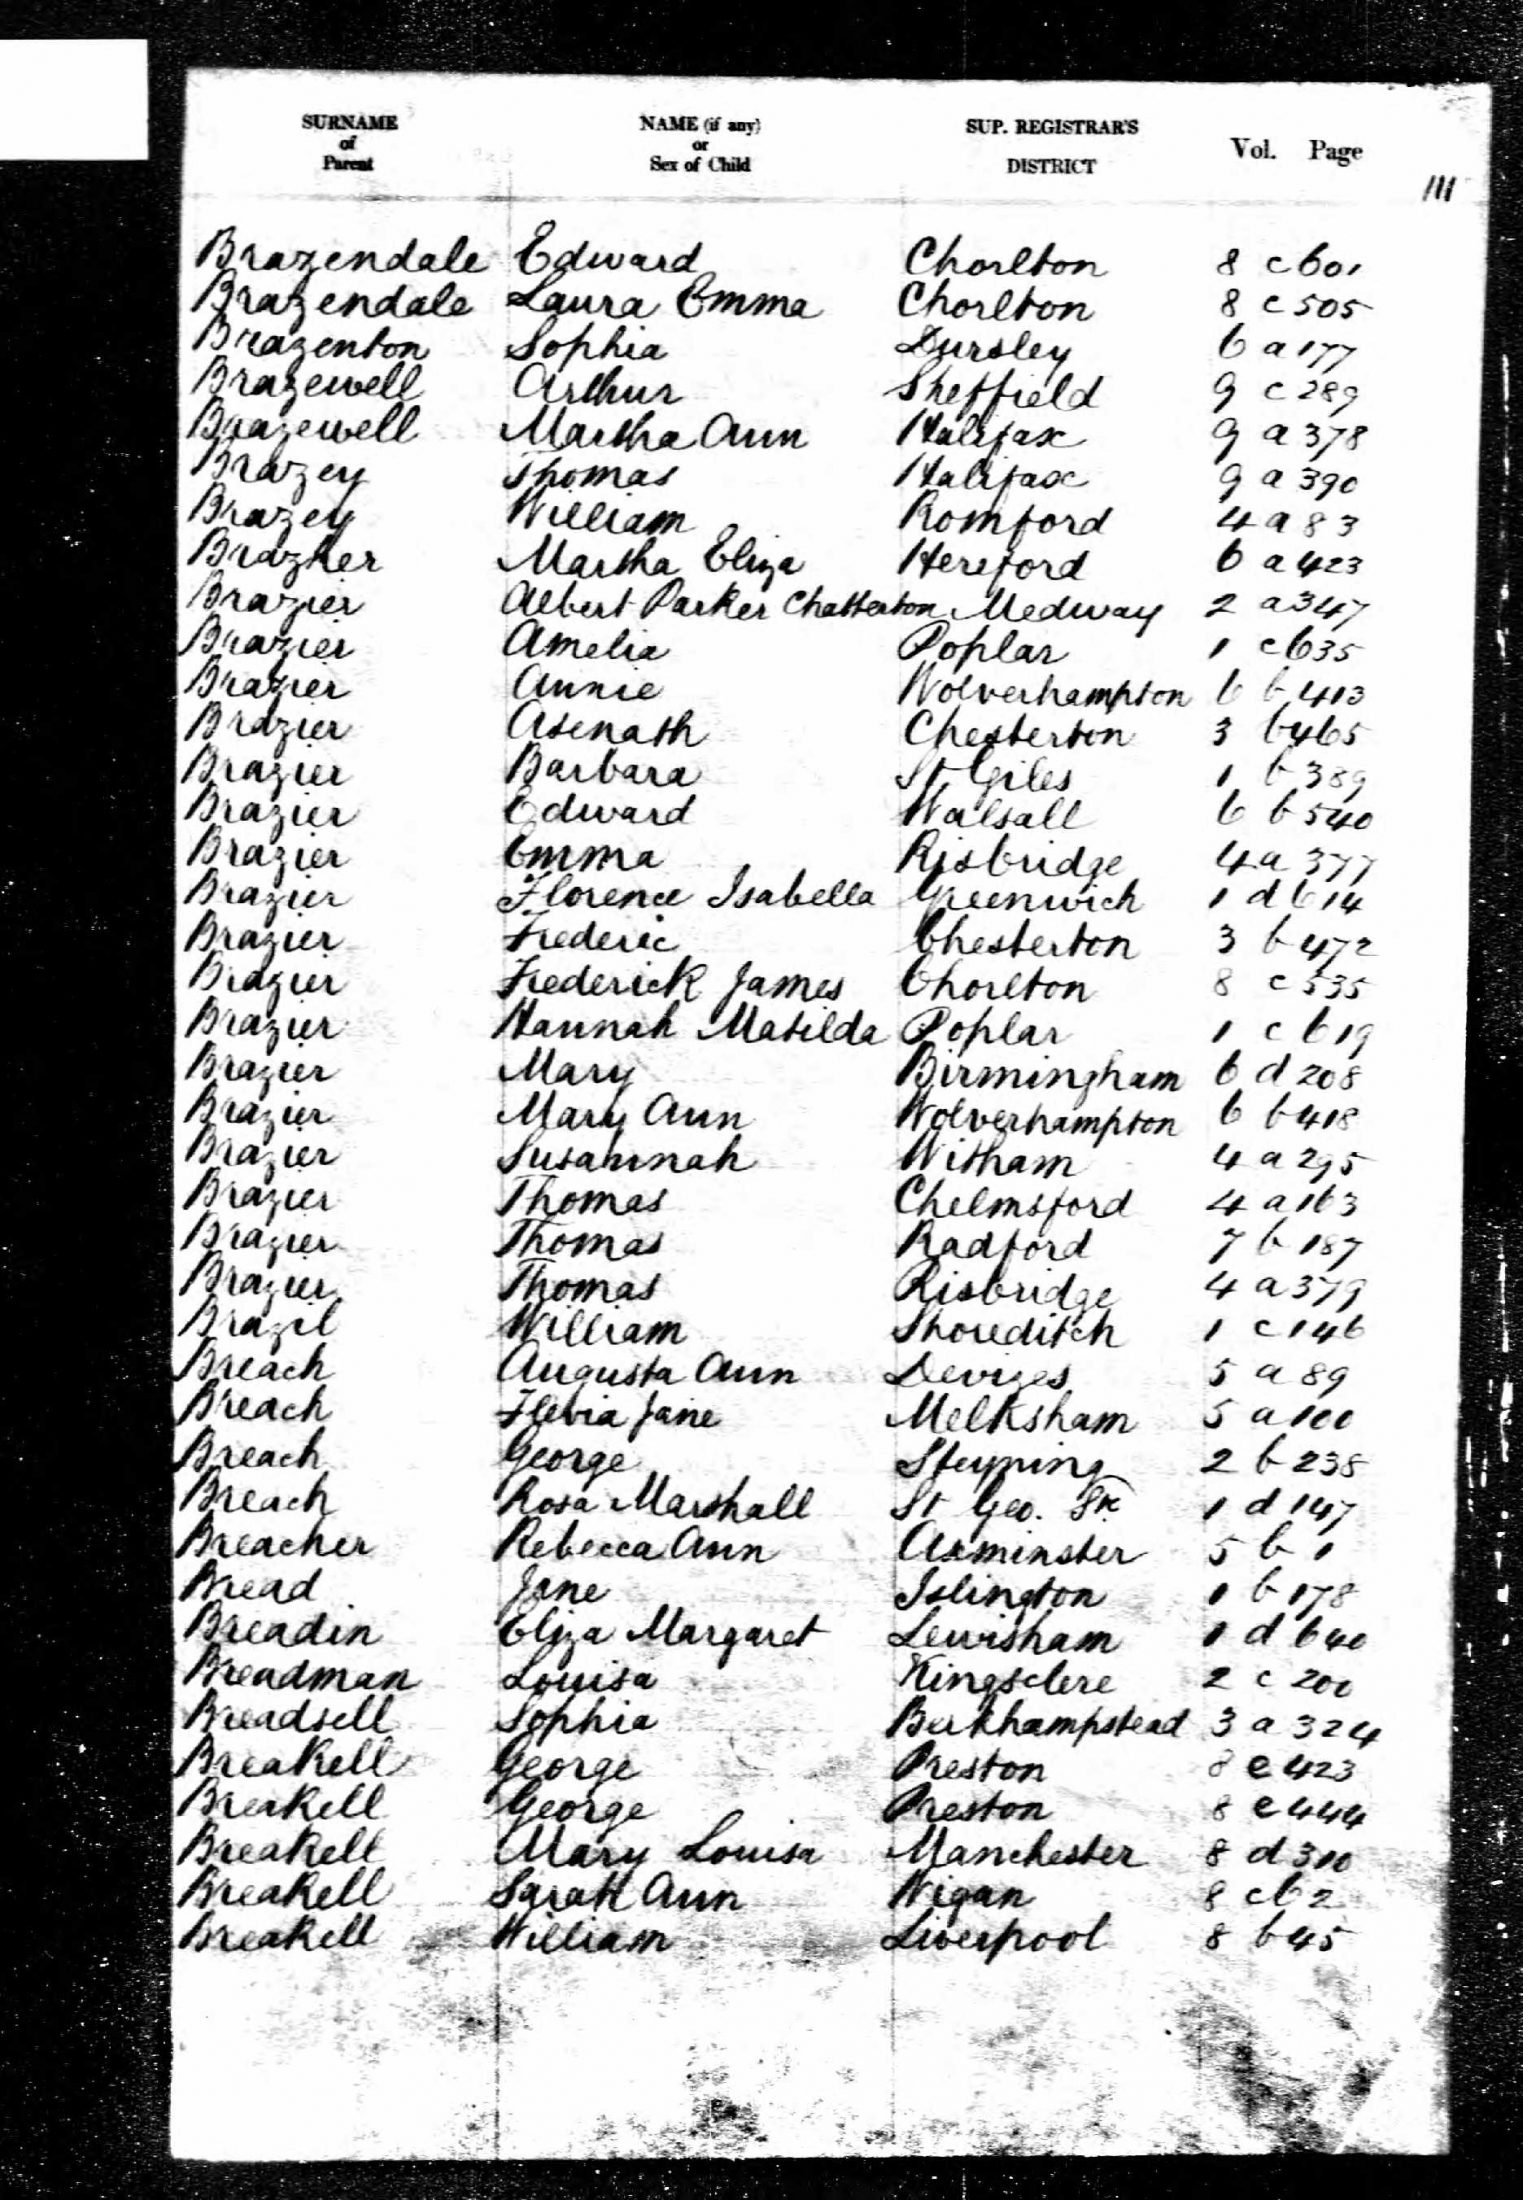 SURNAME of Parent NAME (if any) or Sex of Child SUP. REGISTRAR'S DISTRICT Vol. Page
111
Brazendale Edward Chorlton 8 c 601
Brazendale Laura Emma Chorlton 8 c 505
Brazenton Sophia Dursley 6 a 177
Brazewell Arthur Sheffield 9 c 289
Brazewell Martha Ann Halifax 9 a 378
Brazey Thomas Halifax 9 a 390
Brazey William Romford 4 a 83
Brazher Martha Eliza Hereford 6 a 423
Brazier Albert Parker Chatterton Medway 2 a 347
Brazier Amelia Poplar 1 c 635
Brazier Annie Wolverhampton 6 b 413
Brazier Asenath Chesterton 3 b 465
Brazier Barbara St Giles 1 b 389
Brazier Edward Walsall 6 b 540
Brazier Emma Risbridge 4 a 377
Brazier Florence Isabella Greenwich 1 d 614
Brazier Frederic Chesterton 3 b 472
Brazier Frederick James Chorlton 8 c 535
Brazier Hannah Matilda Poplar 1 c 619
Brazier Mary Birmingham 6 d 208
Brazier Mary Ann Wolverhampton 6 b 418
Brazier Susannah Witham 4 a 295
Brazier Thomas Chelmsford 4 a 163
Brazier Thomas Radford 7 b 187
Brazier Thomas Risbridge 4 a 379
Brazil William Shoreditch 1 c 146
Breach Augusta Ann Devizes 5 a 89
Breach Flevia Jane Melksham 5 a 100
Breach George Steyning 2 b 238
Breach Rosa Marshall St Geo. Sk 1 d 147
Breacher Rebecca Ann Axminster 5 b 1
Bread Jane Islington 1 b 178
Breadin Eliza Margaret Lewisham 1 d 640
Breadman Louisa Kingsclere 2 c 200
Breadsell Sophia Berkhampstead 3 a 324
Breakell George Preston 8 e 423
Breakell George Preston 8 e 444
Breakell Mary Louisa Manchester 8 d 310
Breakell Sarah Ann Wigan 8 c 62
Breakell William Liverpool 8 b 45